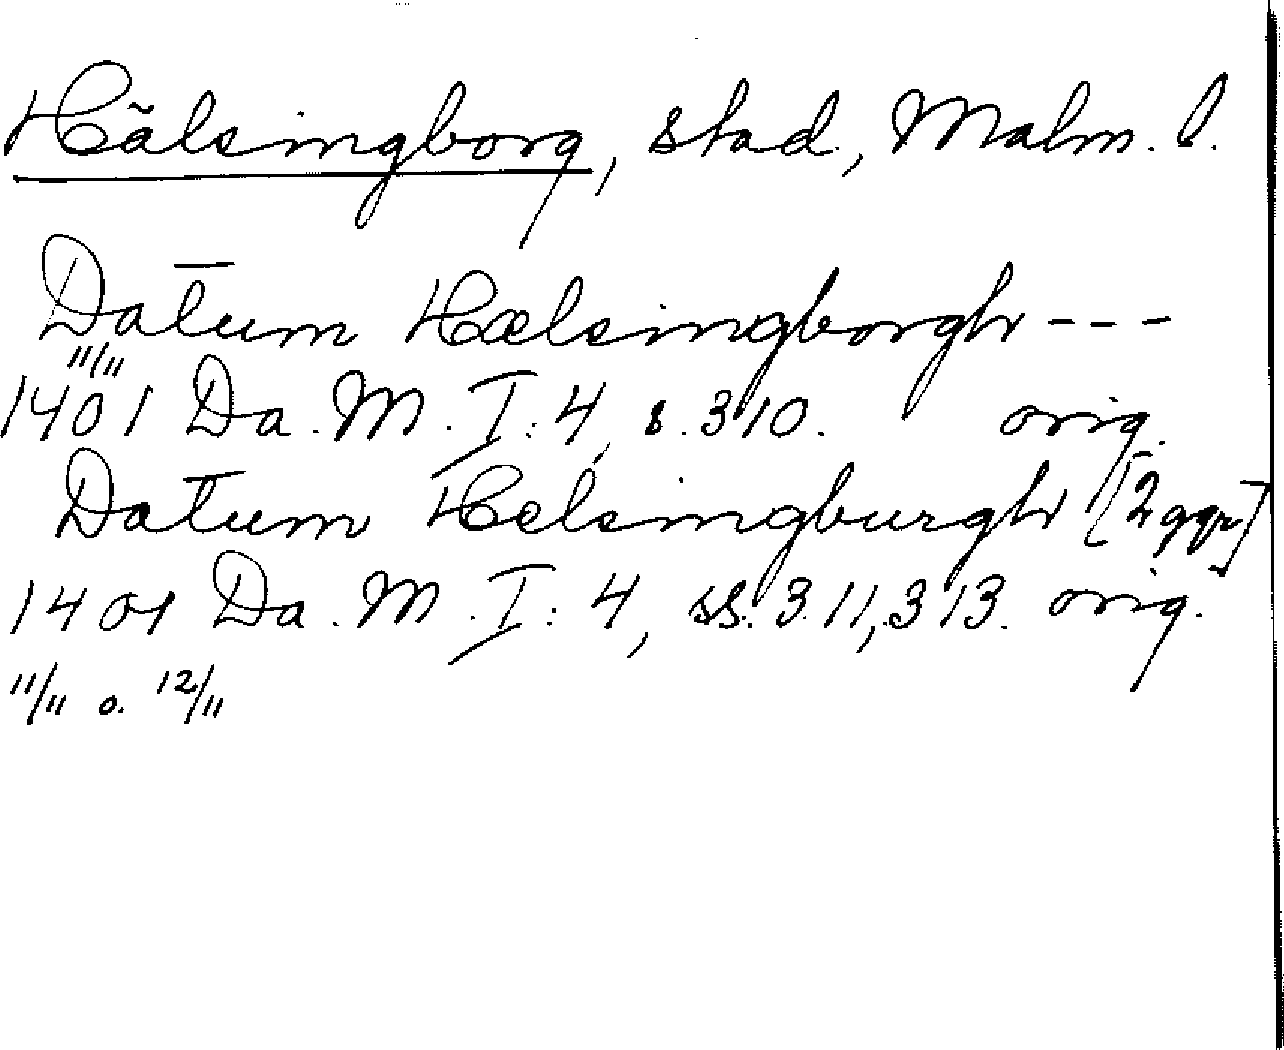 Hälsingborg, stad, Malm. l.
Datum Hælsingborgh ---
11/11
1401 Da. M. I: 4, s. 310. orig.
Datum Helsingburgh [2 ggr]
1401 Da. M. I: 4, ss. 311, 313. orig.
11/11 o. 12/11